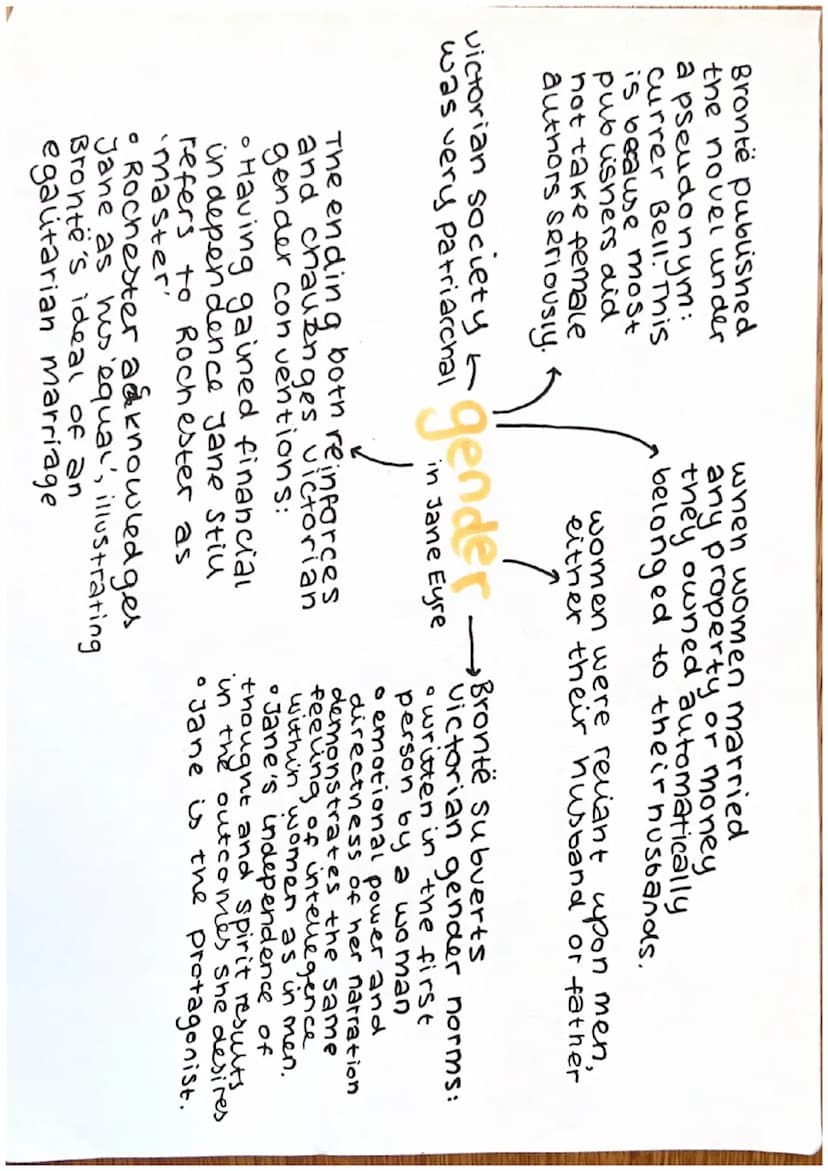 Brontë published
the novel under
a pseudonym:
Currer Bell. This
is because most
publishers did
not take female
authors seriously.
when women married
any property or money
they owned automatically
belonged to their husbands.
women were reliant upon men,
either their husband or father
victorian society
was very patriarchal
gender
in Jane Eyre
Brontë subverts
victorian gender norms:
• written in the first
person by a woman
• emotional power and
directness of her narration
demonstrates the same
feeling of intellegence
within women as in men.
• Jane's independence of
thought and spirit results
in the outcomes she desires
• Jane is the protagonist.
The ending both reinforces
and challenges victorian
gender conventions:
• Having gained financial
independence Jane still
refers to Rochester as
'master'
• Rochester acknowledges
Jane as his 'equal', illustrating
Brontë's ideal of an
egalitarian marriage